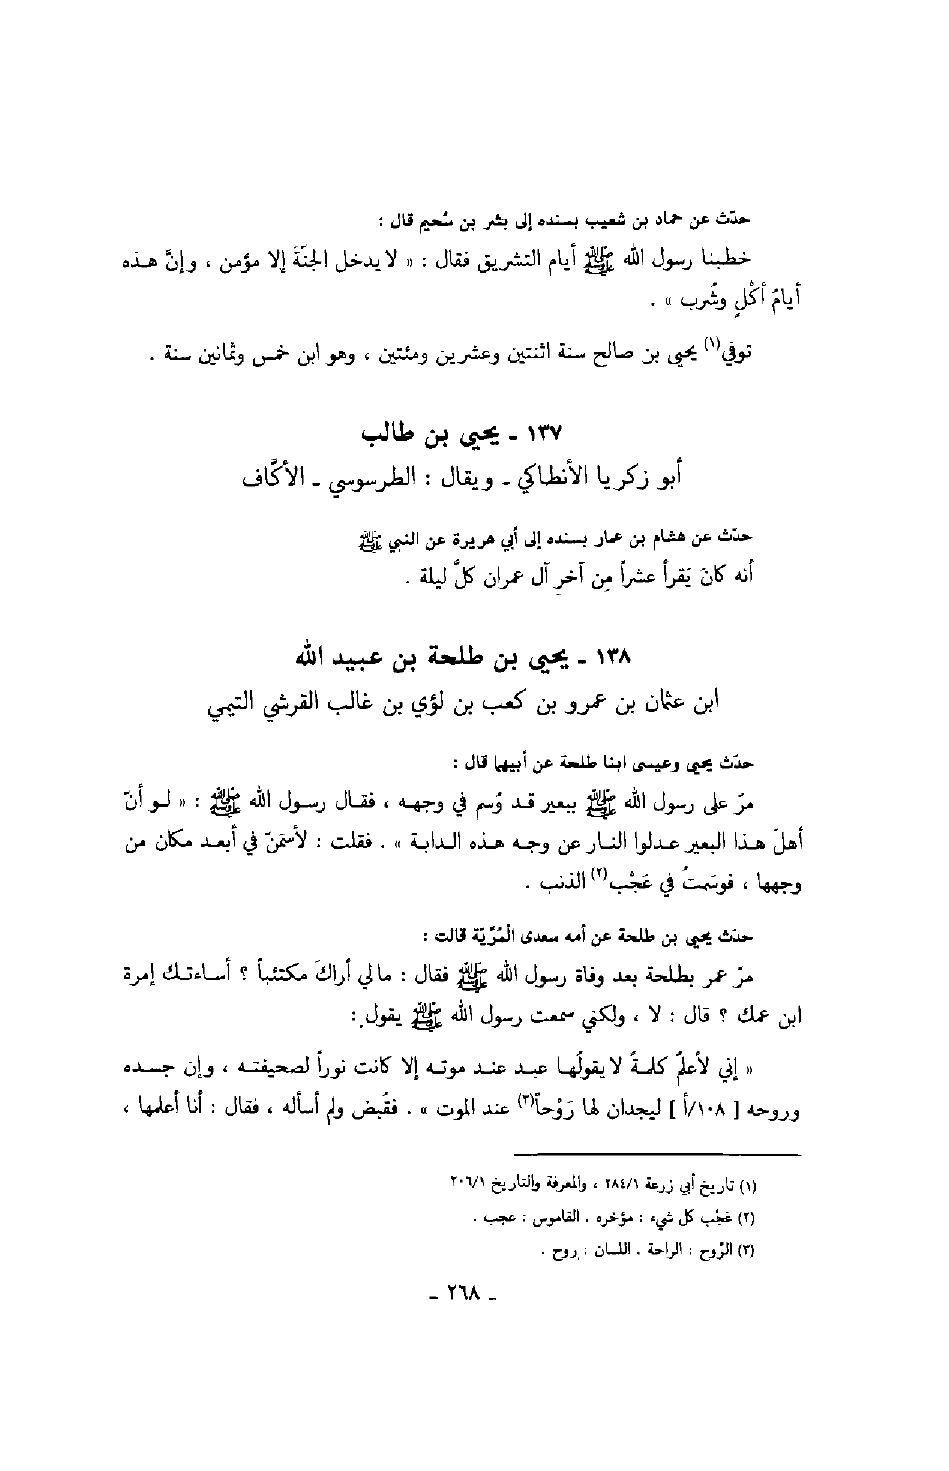 حدّث عن حماد بن شعيب بسنده إلى بشر بن سُحيم قال :
خطبنا رسول الله ﷺ أيام التشريق فقال : « لا يدخل الجنّةَ إلا مؤمن ، وإنَّ هذه
أيامُ أكْلٍ وشُرب » .
توفي(١) يحيى بن صالح سنة اثنتين وعشرين ومئتين ، وهو ابن خمس وثمانين سنة .
١٣٧ ـ يحيى بن طالب
أبو زكريا الأنطاكي ـ ويقال : الطرسوسي ـ الأكَّاف
حدّث عن هشام بن عمار بسنده إلى أبي هريرة عن النبي ﷺ
أنه كانَ يَقرأ عشراً مِن آخرِ آل عمران كلَّ ليلة .
١٣٨ ـ يحيى بن طلحة بن عبيد الله
ابن عثمان بن عمرو بن كعب بن لؤي بن غالب القرشي التيمي
حدّث يحيى وعيسى ابنا طلحة عن أبيهما قال :
مرّ على رسول الله ﷺ ببعير قد وُسم في وجهه ، فقال رسول الله ﷺ : « لو أنّ
أهلَ هذا البعير عدلوا النار عن وجه هذه الدابة » . فقلت : لأسمَنّ في أبعد مكان من
وجهها ، فوسَمتُ في عَجْب(٢) الذنب .
حدّث يحيى بن طلحة عن أمه سعدى المُرّيّة قالت :
مرّ عمر بطلحة بعد وفاة رسول الله ﷺ فقال : مالي أراكَ مكتئباً ؟ أساءتك إمرة
ابن عمك ؟ قال : لا ، ولكني سمعت رسول الله ﷺ يقول :
« إني لأعلمُ كلمةً لا يقولُها عبد عند موته إلا كانت نوراً لصحيفته ، وإن جسده
وروحه [ ١٠٨/أ ] ليجدان لها رَوْحاً(٣) عند الموت » . فقُبض ولم أسأله ، فقال : أنا أعلمها ،
(١) تاريخ أبي زرعة ٢٨٤/١ ، والمعرفة والتاريخ ٢٠٦/١
(٢) عَجْب كل شيء : مؤخره . القاموس : عجب .
(٣) الرَّوح : الراحة . اللسان : روح .
ـ ٢٦٨ ـ